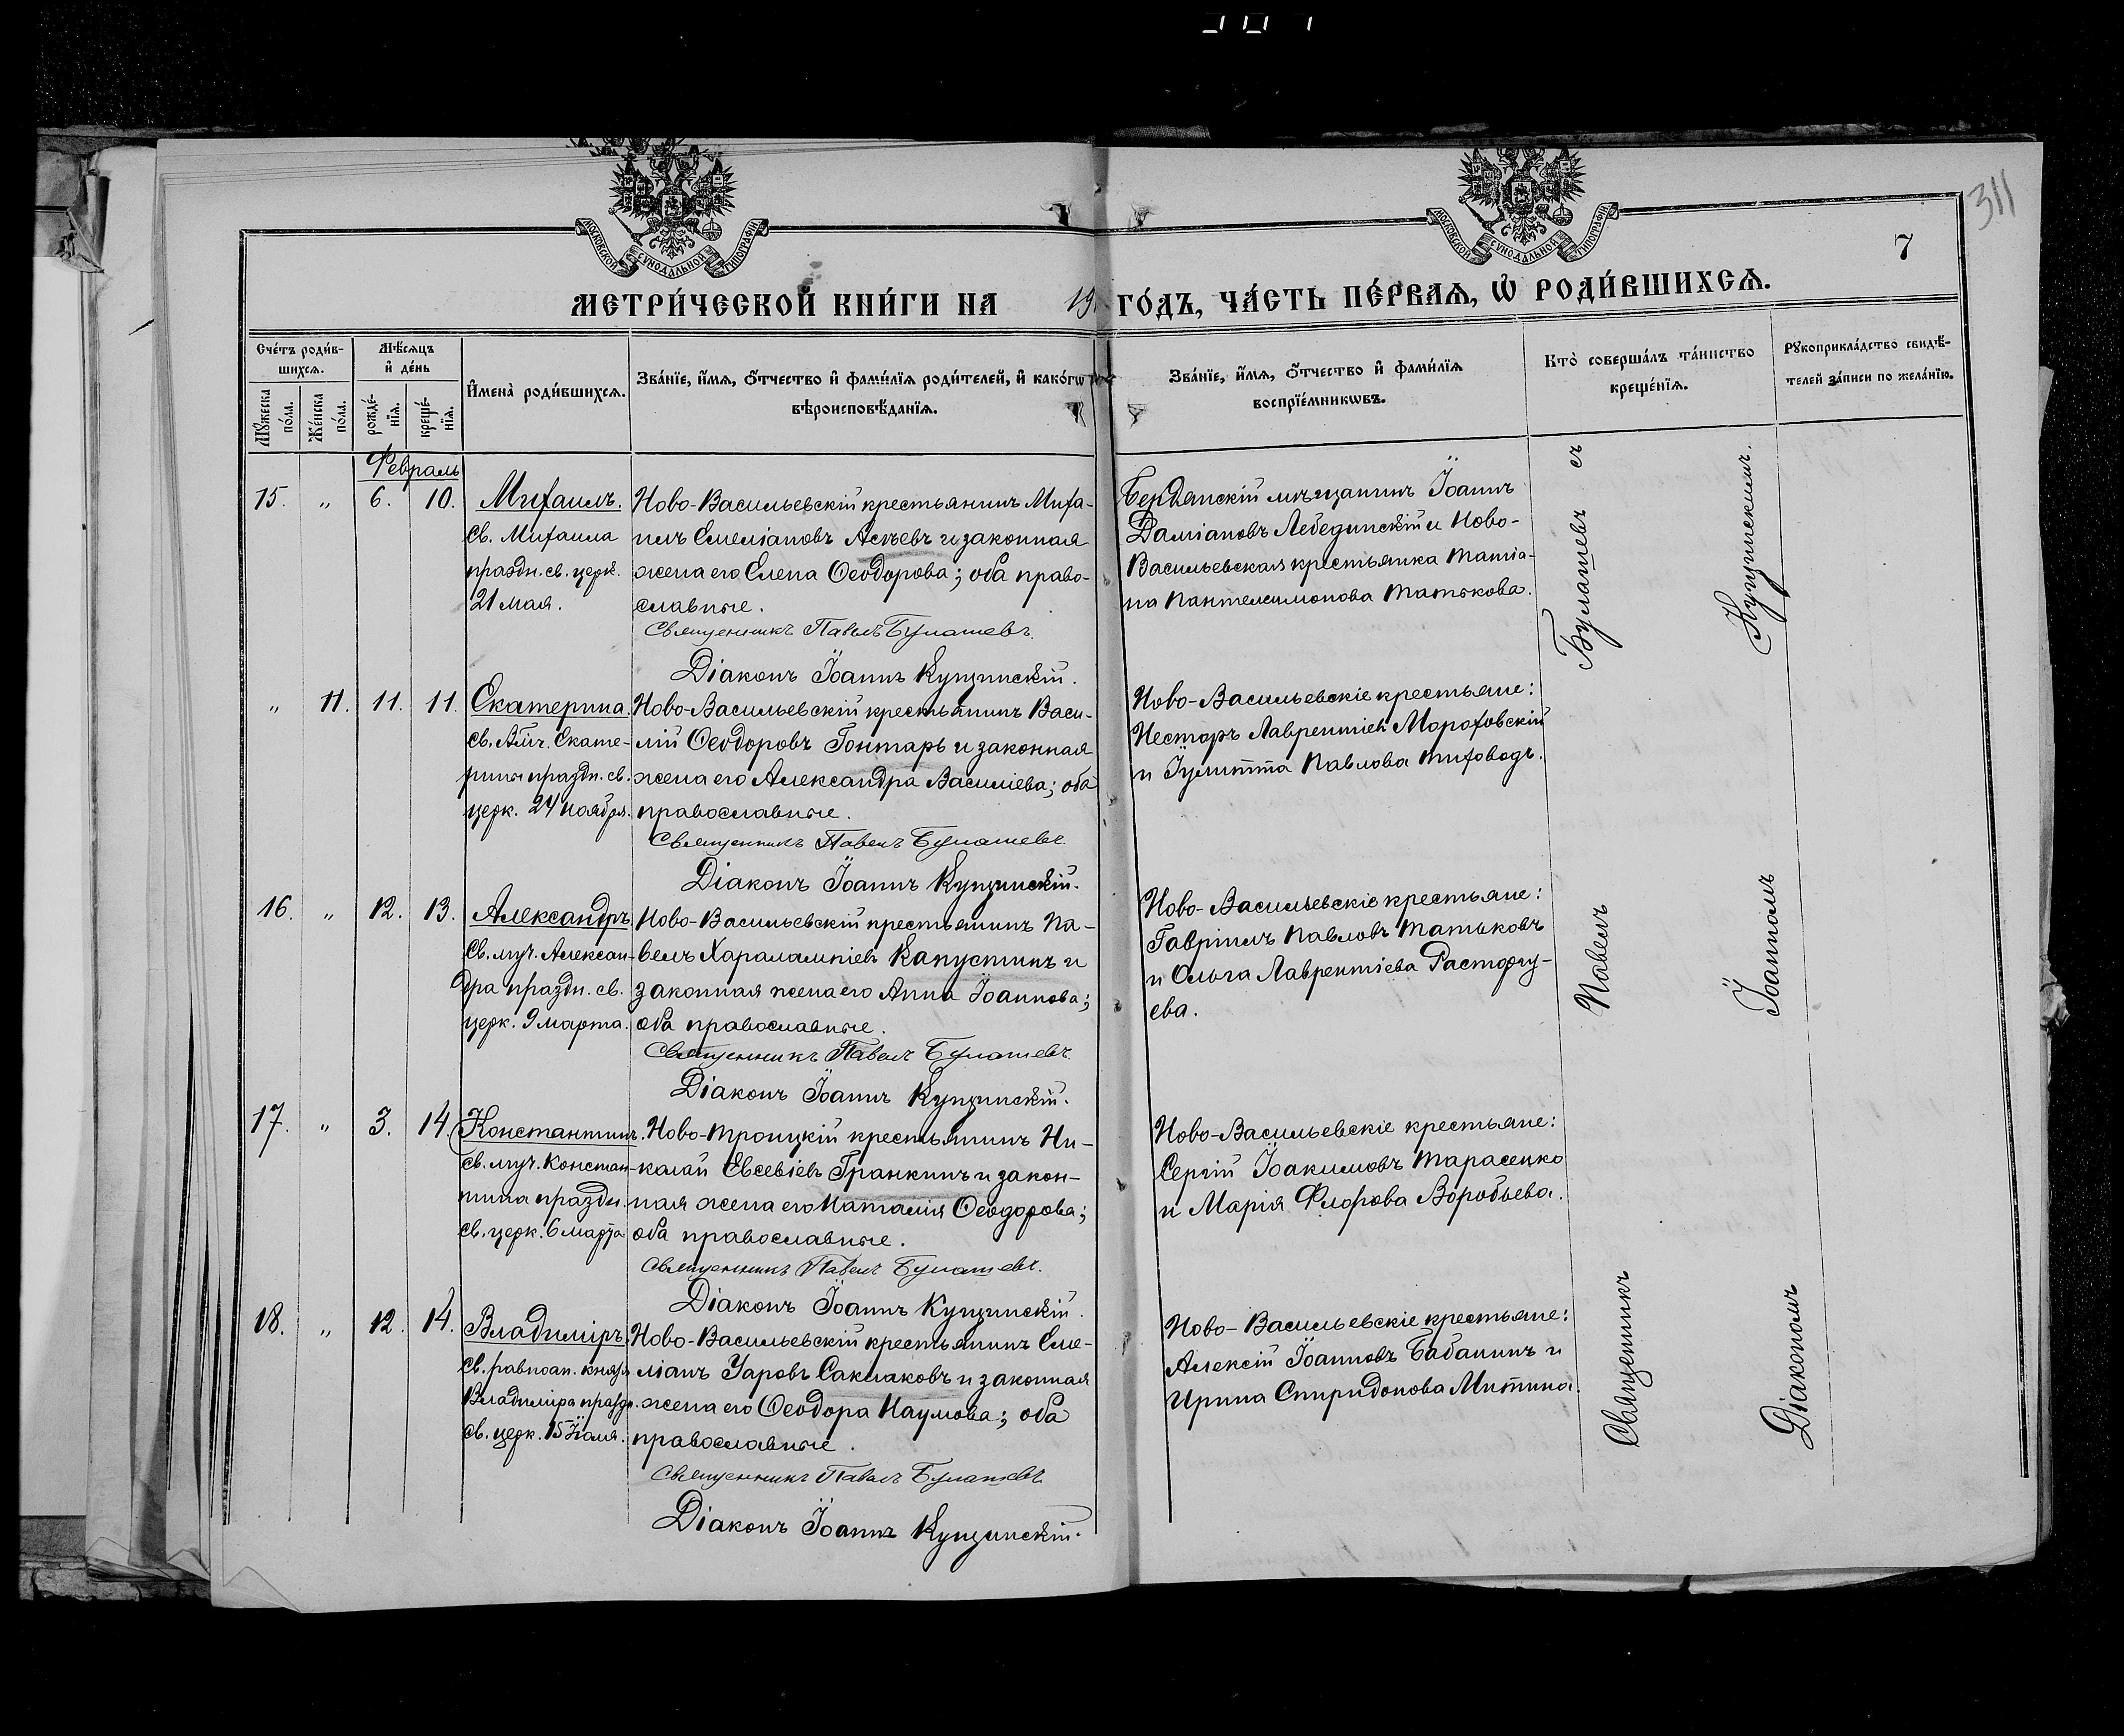 311
7
МОСКОВСКОЙ СѴНОДАЛЬНОЙ ТИПОГРАФІИ
МОСКОВСКОЙ СѴНОДАЛЬНОЙ ТИПОГРАФІИ
МЕТРИ́ЧЕСКОЙ КНИ́ГИ НА 19 ГО́ДЪ, ЧА́СТЬ ПЕ́РВАѦ, Ѡ҆ РОДИ́ВШИХСѦ.
Счéтъ роди́в-
шихсѧ.
Мꙋ́жеска
по́ла.
Же́нска
по́ла.
Мѣ́сѧцъ
и҆ де́нь
рожде́-
нїѧ.
креще́-
нїѧ.
И҆мена̀ роди́вшихсѧ.
Зва́нїе, и҆́мѧ, ѻ҆́тчество и҆ фами́лїѧ роди́телей, и҆ како́гѡ
вѣроисповѣ́данїѧ.
Зва́нїе, и҆́мѧ, ѻ҆́тчество и҆ фами́лїѧ
воспрїе́мникѡвъ.
Кто̀ соверша́лъ та́инство
креще́нїѧ.
Рꙋкоприкла́дство свидѣ́-
телей за́писи по жела́нїю.
Февраль
15. „ 6. 10. Михаилъ.
Св. Михаила
праздн. св. церк.
21 мая.
Ново-Васильевскій крестьянинъ Миха-
илъ Емеліановъ Асѣевъ и законная
жена его Елена Ѳеодорова; оба право-
славные.
Священникъ Павелъ Булашевъ.
Діаконъ Іоаннъ Кущинскій.
Бердянскій мѣщанинъ Іоаннъ
Даміановъ Лебединскій и Ново-
Васильевская крестьянка Татіа-
на Пантелеимонова Татькова.
„ 11. 11. 11. Екатерина.
Св. вмч. Екате-
рины праздн. св.
церк. 24 ноября.
Ново-Васильевскій крестьянинъ Васи-
лій Ѳеодоровъ Гонтарь и законная
жена его Александра Василіева; оба
православные.
Священникъ Павелъ Булашевъ.
Діаконъ Іоаннъ Кущинскій.
Ново-Васильевскіе крестьяне:
Несторъ Лаврентіевъ Мороховскій
и Іулитта Павлова Тиховодъ.
16. „ 12. 13. Александръ
Св. муч. Алексан-
дра праздн. св.
церк. 9 марта.
Ново-Васильевскій крестьянинъ Па-
велъ Харалампіевъ Капустинъ и
законная жена его Анна Іоаннова;
оба православные.
Священникъ Павелъ Булашевъ.
Діаконъ Іоаннъ Кущинскій.
Ново-Васильевскіе крестьяне:
Гавріилъ Павловъ Татьковъ
и Ольга Лаврентіева Расторгу-
ева.
17. „ 3. 14. Константинъ.
Св. муч. Констан-
тина праздн.
св. церк. 6 марта
Ново-Троицкій крестьянинъ Ни-
колай Евсевіевъ Гранкинъ и закон-
ная жена его Наталія Ѳеодорова;
оба православные.
Священникъ Павелъ Булашевъ.
Діаконъ Іоаннъ Кущинскій.
Ново-Васильевскіе крестьяне:
Сергій Іоакимовъ Тарасенко
и Марія Флорова Воробьева.
18. „ 12. 14. Владиміръ.
Св. равноап. князя
Владиміра праздн.
св. церк. 15 Іюля.
Ново-Васильевскій крестьянинъ Еме-
ліанъ Уаровъ Саклаковъ и законная
жена его Ѳеодора Наумова; оба
православные.
Священникъ Павелъ Булашевъ
Діаконъ Іоаннъ Кущинскій.
Ново-Васильевскіе крестьяне:
Алексій Іоанновъ Бабанинъ и
Ирина Спиридонова Митина.
Священникъ Павелъ Булашевъ съ
Діакономъ Іоанномъ Кущинскимъ.